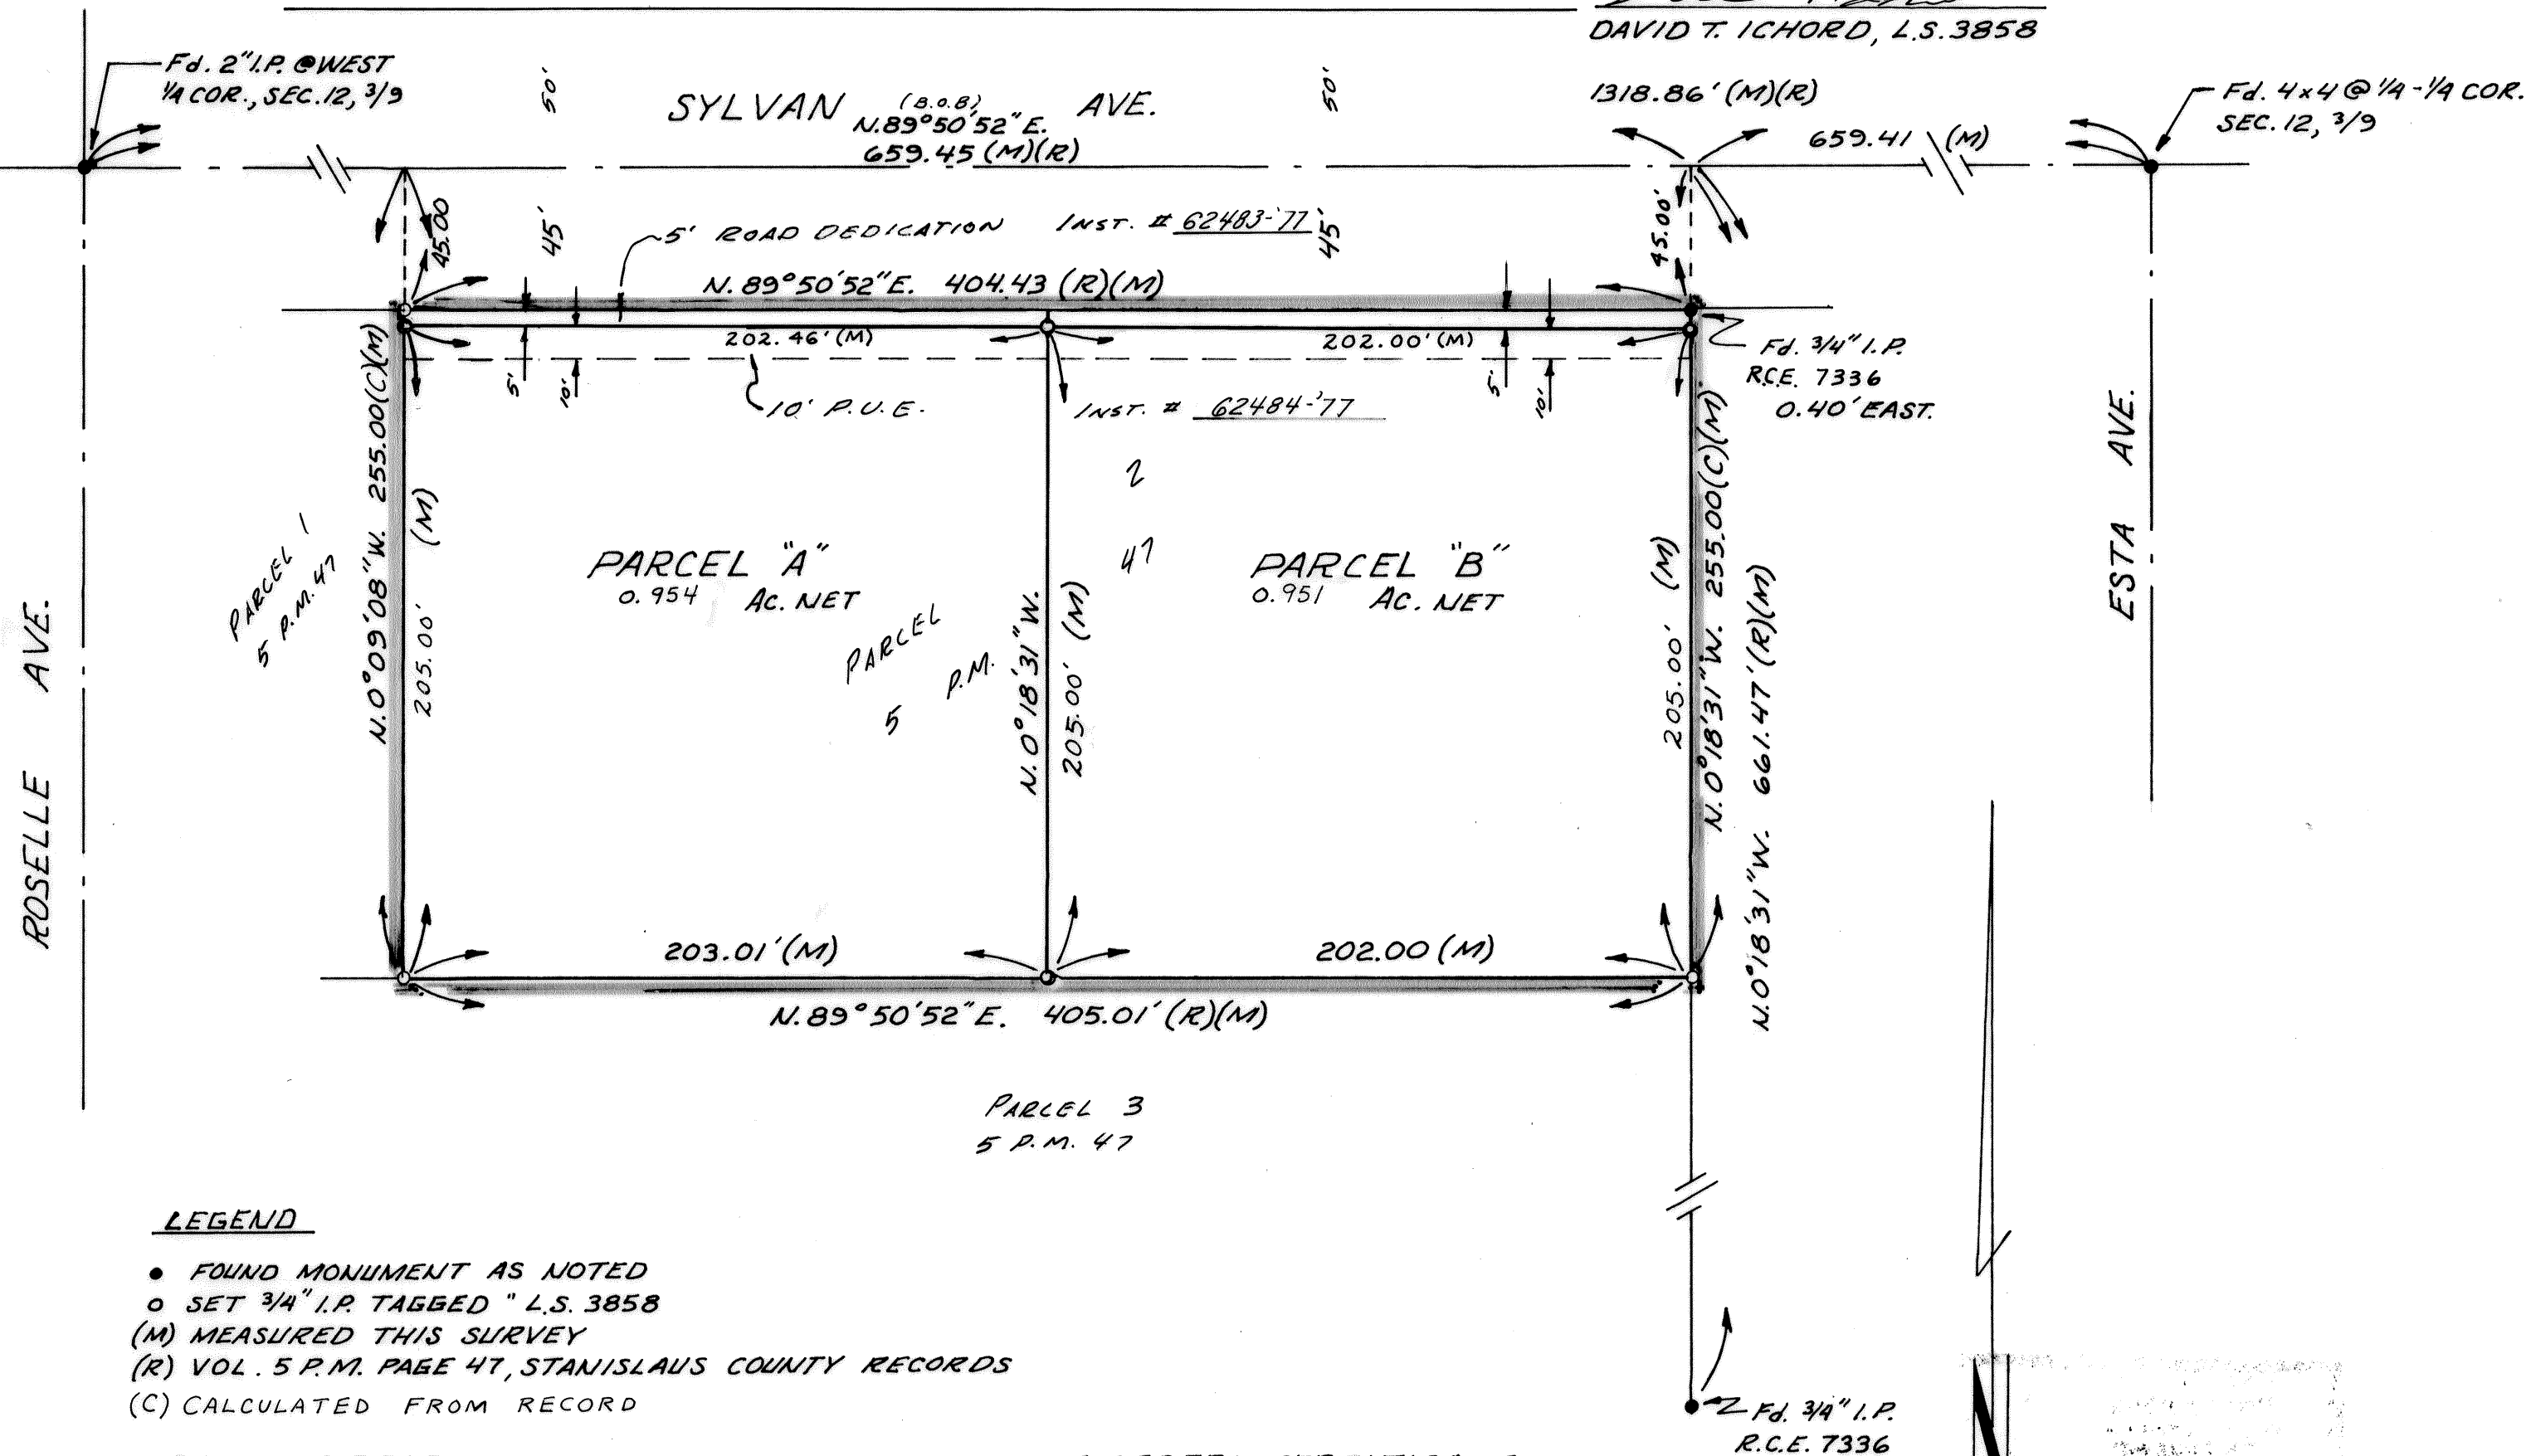 DAVID T. ICHORD, L.S. 3858
Fd. 2" I.P. @ WEST
1/4 COR., SEC. 12, 3/9
50'
SYLVAN AVE.
(B.O.B)
N. 89° 50' 52" E.
659.45 (M)(R)
50'
1318.86' (M)(R)
659.41 (M)
Fd. 4x4 @ 1/4-1/4 COR.
SEC. 12, 3/9
45.00
45'
5' ROAD DEDICATION INST. # 62483-'77
45'
45.00'
N. 89° 50' 52" E. 404.43 (R)(M)
202.46' (M)
202.00' (M)
Fd. 3/4" I.P.
R.C.E. 7336
0.40' EAST.
5'
10'
10' P.U.E.
INST. # 62484-'77
5'
10'
ROSELLE AVE.
PARCEL 1
5 P.M. 47
N. 0° 09' 08" W. 255.00 (C)(M)
205.00' (M)
PARCEL "A"
0.954 AC. NET
PARCEL 2
5 P.M. 47
N. 0° 18' 31" W.
205.00' (M)
PARCEL "B"
0.951 AC. NET
205.00' (M)
N. 0° 18' 31" W. 255.00 (C)(M)
N. 0° 18' 31" W. 661.47' (R)(M)
ESTA AVE.
203.01' (M)
202.00 (M)
N. 89° 50' 52" E. 405.01' (R)(M)
PARCEL 3
5 P.M. 47
LEGEND
● FOUND MONUMENT AS NOTED
○ SET 3/4" I.P. TAGGED " L.S. 3858
(M) MEASURED THIS SURVEY
(R) VOL. 5 P.M. PAGE 47, STANISLAUS COUNTY RECORDS
(C) CALCULATED FROM RECORD
Fd. 3/4" I.P.
R.C.E. 7336
N